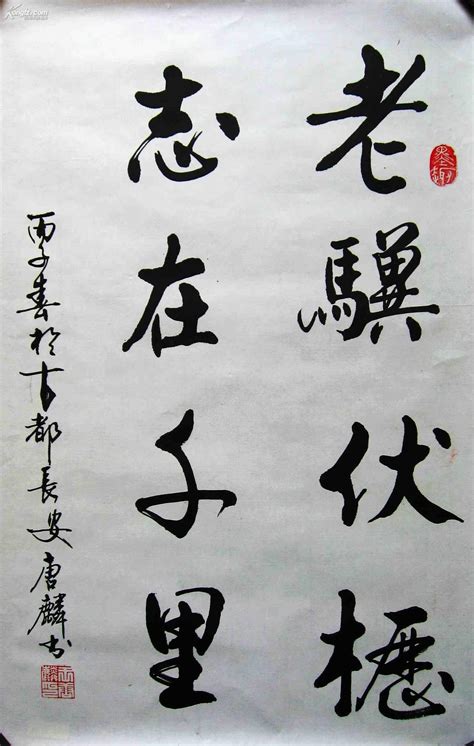 老驥伏櫪
志在千里
丙子春於古都長安唐麟书